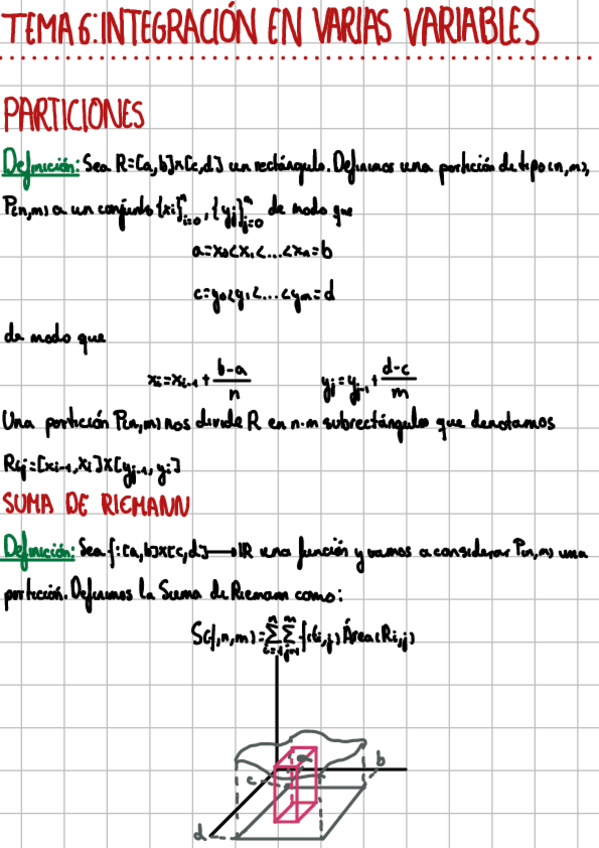 TEMA 6: INTEGRACIÓN EN VARIAS VARIABLES
PARTICIONES
Definición: Sea R=[a,b]x[c,d] un rectángulo. Definimos una partición de tipo (n,m),
P(n,m) a un conjunto {xi}ⁿi=0, {yj}ᵐj=0 de modo que
a=x0<x1<...<xn=b
c=y0<y1<...<ym=d
de modo que
xi=xi-1+(b-a)/n yj=yj-1+(d-c)/m
Una partición P(n,m) nos divide R en n·m subrectángulos que denotamos
Rij=[xi-1,xi]x[yj-1,yj]
SUMA DE RIEMANN
Definición: Sea f:[a,b]x[c,d]→IR una función y vamos a considerar P(n,m) una
partición. Definimos la Suma de Riemann como:
S(f,n,m)=Σⁿi=1 Σᵐj=1 f(ci,j) Área(Ri,j)
b
c
d